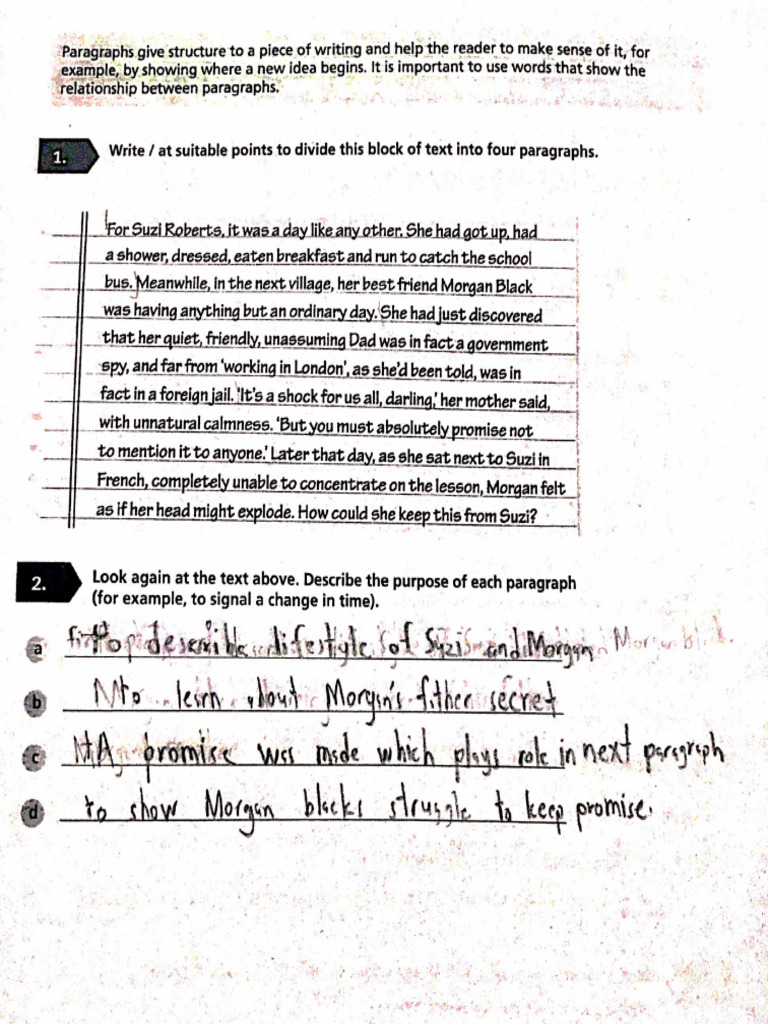 Paragraphs give structure to a piece of writing and help the reader to make sense of it, for
example, by showing where a new idea begins. It is important to use words that show the
relationship between paragraphs.
1. Write / at suitable points to divide this block of text into four paragraphs.
For Suzi Roberts, it was a day like any other. She had got up, had
a shower, dressed, eaten breakfast and run to catch the school
bus. Meanwhile, in the next village, her best friend Morgan Black
was having anything but an ordinary day. She had just discovered
that her quiet, friendly, unassuming Dad was in fact a government
spy, and far from 'working in London', as she'd been told, was in
fact in a foreign jail. 'It's a shock for us all, darling,' her mother said,
with unnatural calmness. 'But you must absolutely promise not
to mention it to anyone.' Later that day, as she sat next to Suzi in
French, completely unable to concentrate on the lesson, Morgan felt
as if her head might explode. How could she keep this from Suzi?
2. Look again at the text above. Describe the purpose of each paragraph
(for example, to signal a change in time).
a describe lifestyle of Suzis and Morgan
b to learn about Morgan's father secret
c A promise was made which plays role in next paragraph
d to show Morgan blacks struggle to keep promise.